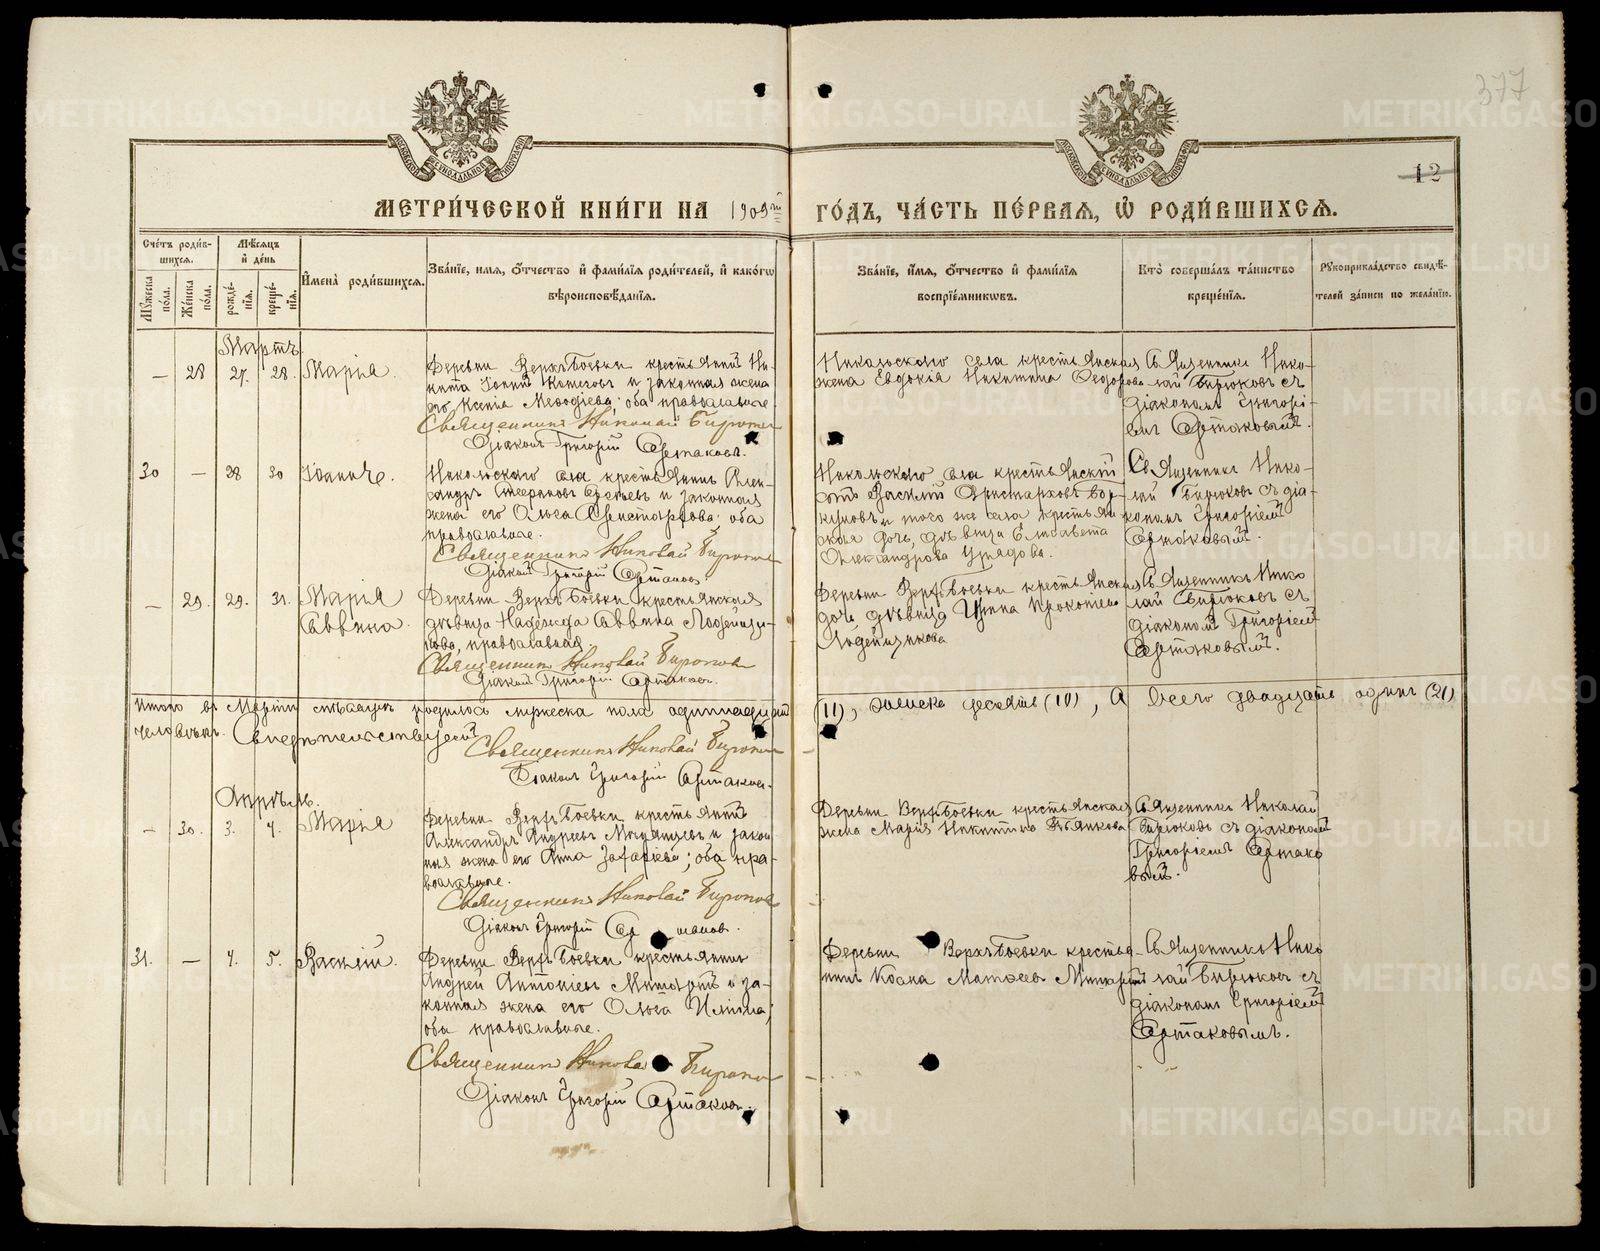 377
12
МЕТРИ́ЧЕСКОЙ КНИ́ГИ НА 1909й ГО́ДЪ, ЧА́СТЬ ПЕ́РВАЯ, Ѽ РОДИ́ВШИХСѦ.
Сче́тъ роди́в-
шихсѧ.
Мꙋ́жеска по́ла.
Же́нска по́ла.
Мѣ́сѧцъ
и҆ де́нь
рожде́-
нїѧ.
креще́-
нїѧ.
И҆мена̀ роди́вшихсѧ.
Зва́нїе, и́мѧ, ѻ҆́тчество и҆ фами́лїѧ роди́телей, и҆ како́гѡ
вѣроисповѣ́данїѧ.
Зва́нїе, и҆́мѧ, ѻ҆́тчество и҆ фами́лїѧ
воспрїе́мникѡвъ.
Кто̀ соверша́лъ та́инство
креще́нїѧ.
Рꙋкоприкла́дство свидѣ́-
телей за́писи по жела́нїю.
Мартъ.
— 28 27. 28. Марія.
Деревни Верхъ Боевки крестьянинъ Ни-
кита и законная жена
его Ксенія Меѳодіева; оба православные.
Священникъ Николай Бирюков
Діаконъ Григорій Сартаковъ.
Никольскаго села крестьянская
жена Евдокія Никитина Ѳедорова
Священникъ Нико-
лай Бирюковъ съ
діакономъ Григорі-
емъ Сартаковымъ.
30 — 28 30 Іоаннъ.
Никольскаго села крестьянинъ Алек-
сандръ и законная
жена его Ольга Аристархова оба
православные.
Священникъ Николай Бирюков
Діаконъ Григорій Сартаковъ.
Никольскаго села крестьянскій
сынъ Василій Аристарховъ
и того же села крестьян-
ская дочь, дѣвица Елисавета
Александрова
Священникъ Нико-
лай Бирюковъ съ діа-
кономъ Григоріемъ
Сартаковымъ.
— 29. 29. 31. Марія
Саввина.
Деревни Верхъ Боевки крестьянская
дѣвица Надежда Саввина
православная
Священникъ Николай Бирюков
Діаконъ Григорій Сартаковъ.
Деревни Верхъ Боевки крестьянская
дочь, дѣвица Прокопіева
Священникъ Нико
лай Бирюковъ съ
діакономъ Григоріемъ
Сартаковымъ.
Итого въ Мартѣ мѣсяцѣ родилось мужеска пола одиннадцать (11), женска десять (10), а всего двадцать одинъ (21)
человѣкъ. Свидѣтельствуемъ
Священникъ Николай Бирюков
Діаконъ Григорій Сартаковъ.
Апрѣль.
— 30. 3. 4. Марія
Деревни Верхъ Боевки крестьянинъ
Александръ Андреевъ и закон
ная жена его Анна Захаріева; оба пра-
вославные.
Священникъ Николай Бирюков
Діаконъ Григорій Сартаковъ.
Деревни Верхъ Боевки крестьянская
жена Марія Никитина
Священникъ Николай
Бирюковъ съ діакономъ
Григоріемъ Сартако
вымъ.
31. — 4. 5. Василій.
Деревни Верхъ Боевки крестьянинъ
Андрей Антоніевъ и за-
конная жена его Ольга
оба православные.
Священникъ Николай Бирюков
Діаконъ Григорій Сартаковъ.
Деревни Верхъ Боевки крестья-
нинъ
Священникъ Нико
лай Бирюковъ съ
діакономъ Григоріемъ
Сартаковымъ.
METRIKI.GASO-URAL.RU